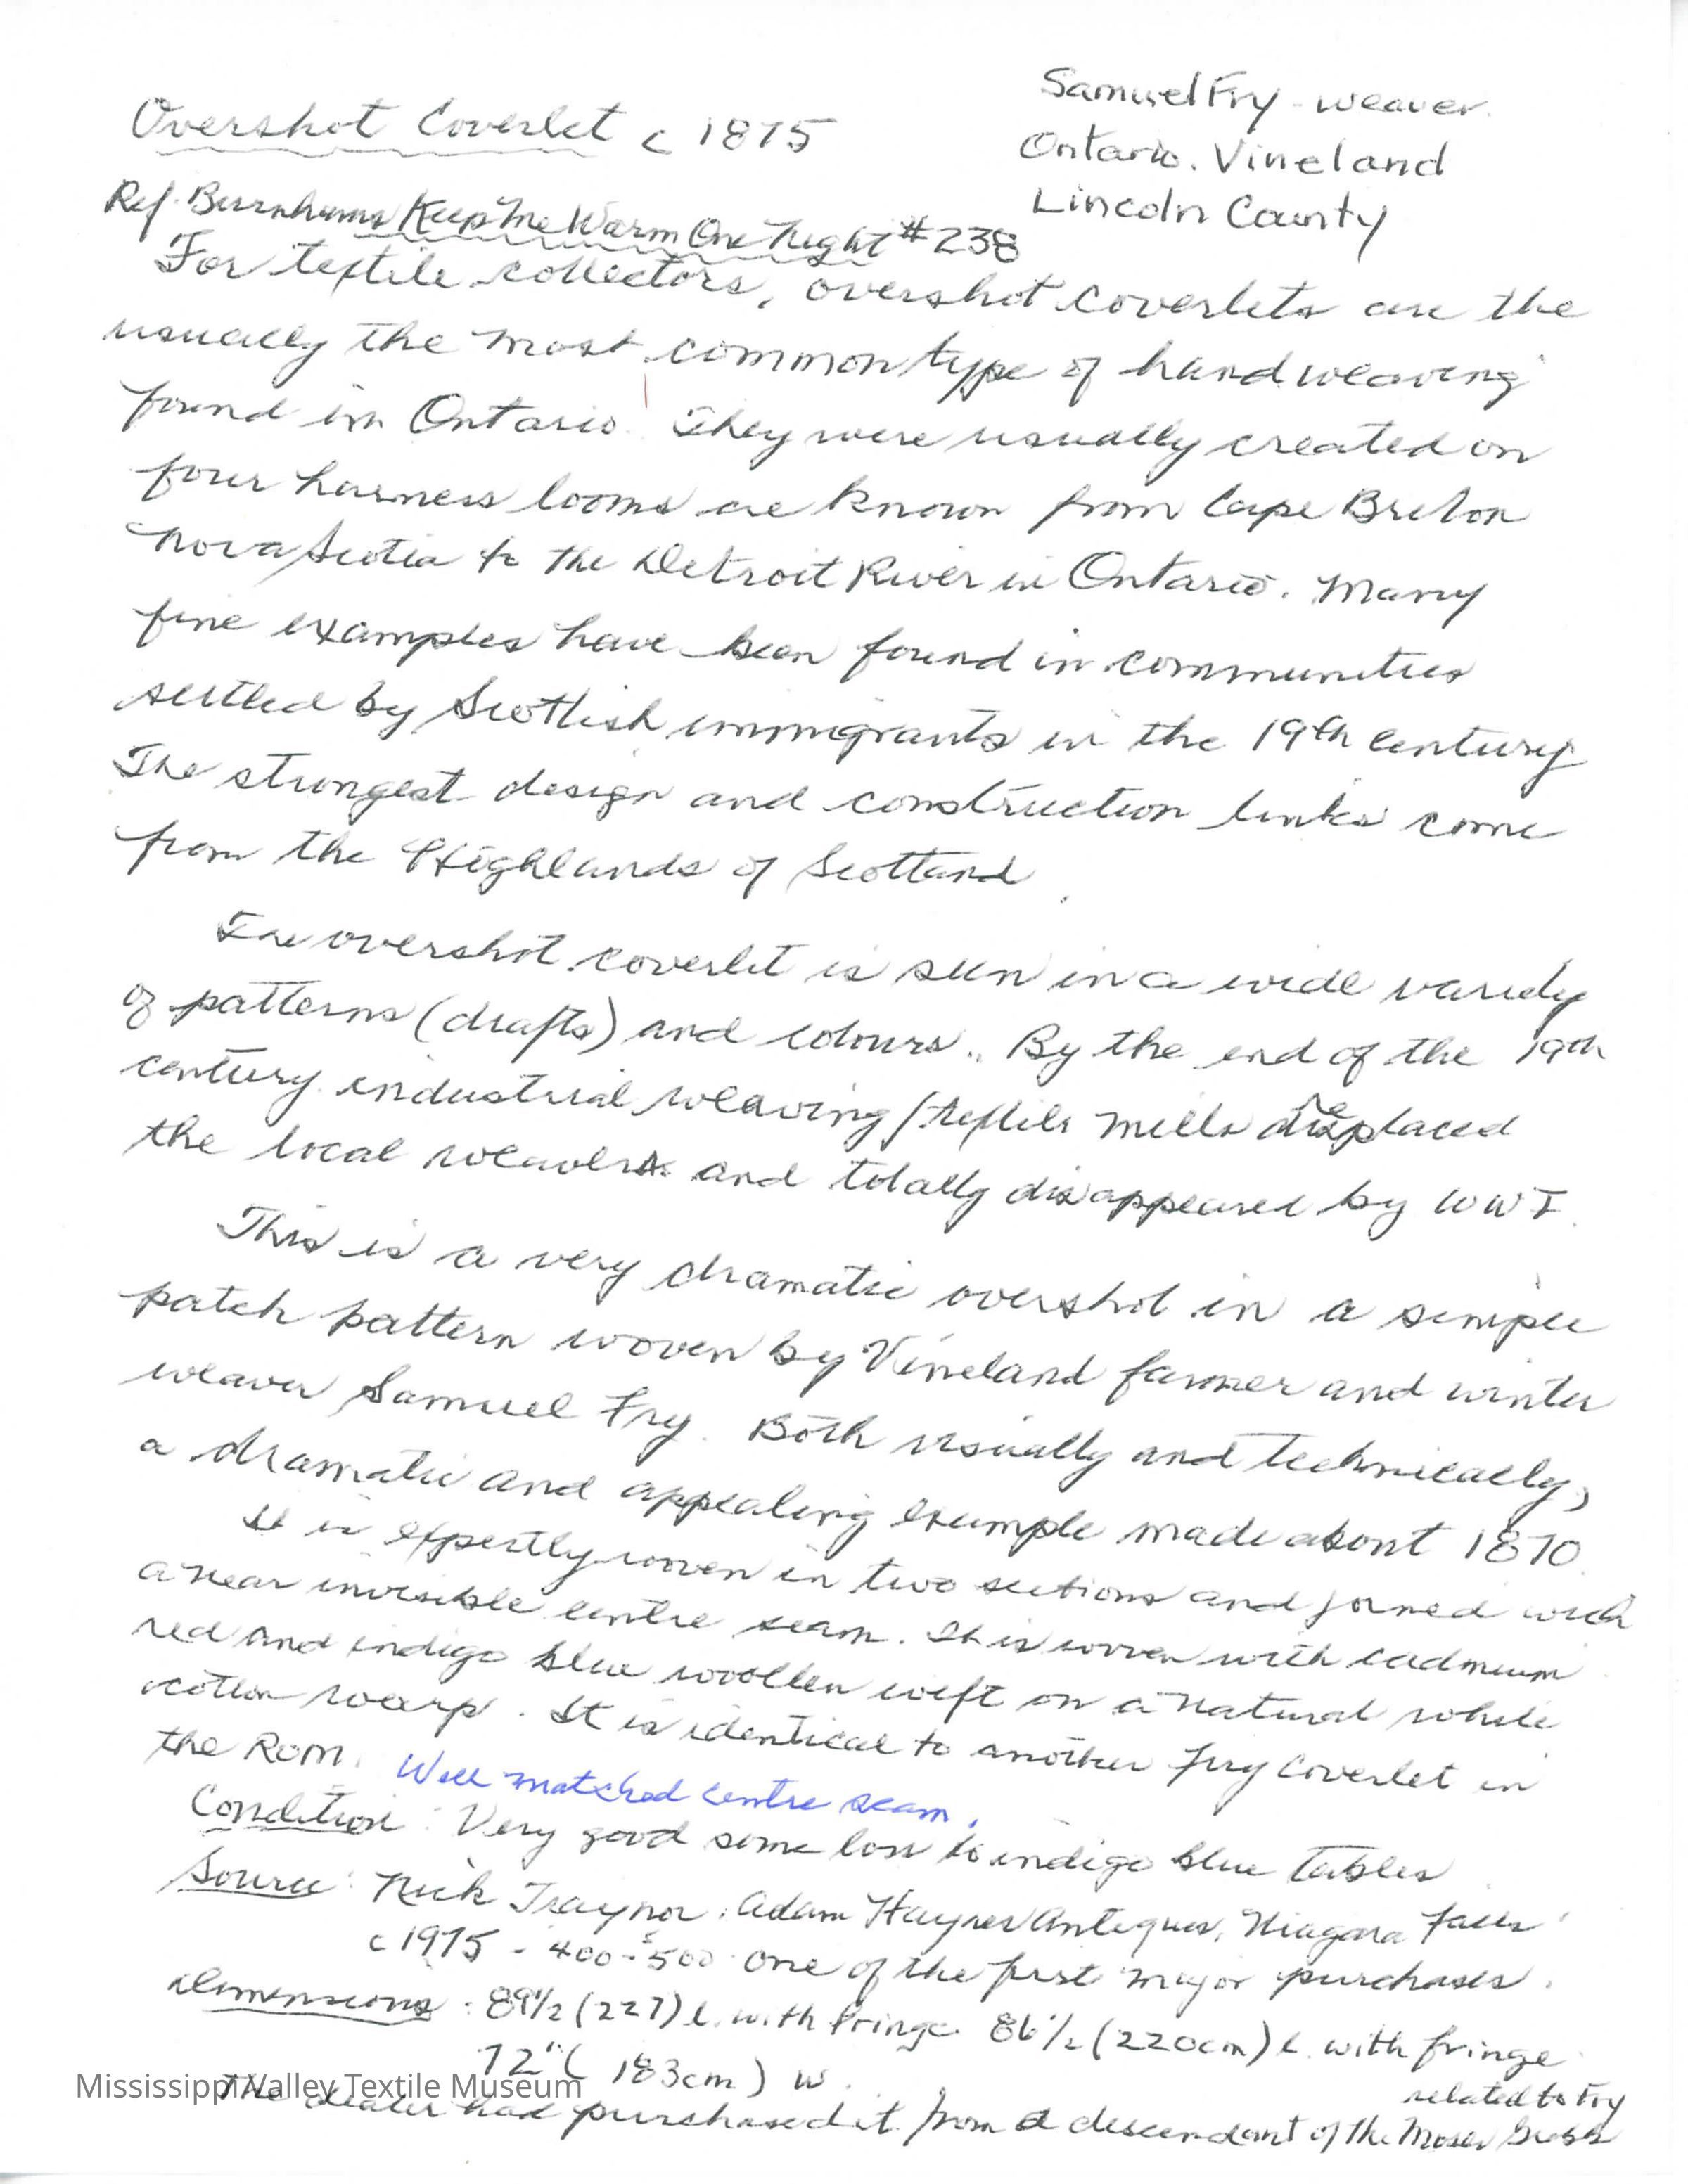 Overshot Coverlet c 1875
Samuel Fry - weaver.
Ontario. Vineland
Lincoln County
Ref. Burnhams Keep Me Warm One Night #238
For textile collectors, overshot coverlets are the
usually the most common type of handweaving
found in Ontario. They were usually created on
four harness looms are known from Cape Breton
Nova Scotia to the Detroit River in Ontario. Many
fine examples have been found in communities
settled by Scottish immigrants in the 19th century
The strongest design and construction links come
from the Highlands of Scotland.
The overshot coverlet is seen in a wide variety
of patterns (drafts) and colours. By the end of the 19th
century industrial weaving/textile mills replaced
the local weavers and totally disappeared by WWI.
This is a very dramatic overshot in a simple
patch pattern woven by Vineland farmer and winter
weaver Samuel Fry. Both visually and technically,
a dramatic and appealing example made about 1870.
It is expertly woven in two sections and joined with
a near invisible centre seam. It is woven with cadmium
red and indigo blue woollen weft on a natural white
cotton warp. It is identical to another Fry coverlet in
the ROM. Well matched centre seam.
Condition: Very good some loss to indigo blue tables
Source: Nick Traynor. Adam Haynes Antiques, Niagara Falls
c 1975 - 400-$500 One of the first major purchases.
Dimensions: 89 1/2 (227) l. with fringe 86 1/2 (220cm) l. with fringe
72" (183cm) w.
related to Fry
The dealer had purchased it from a descendant of the Moser
Mississippi Valley Textile Museum